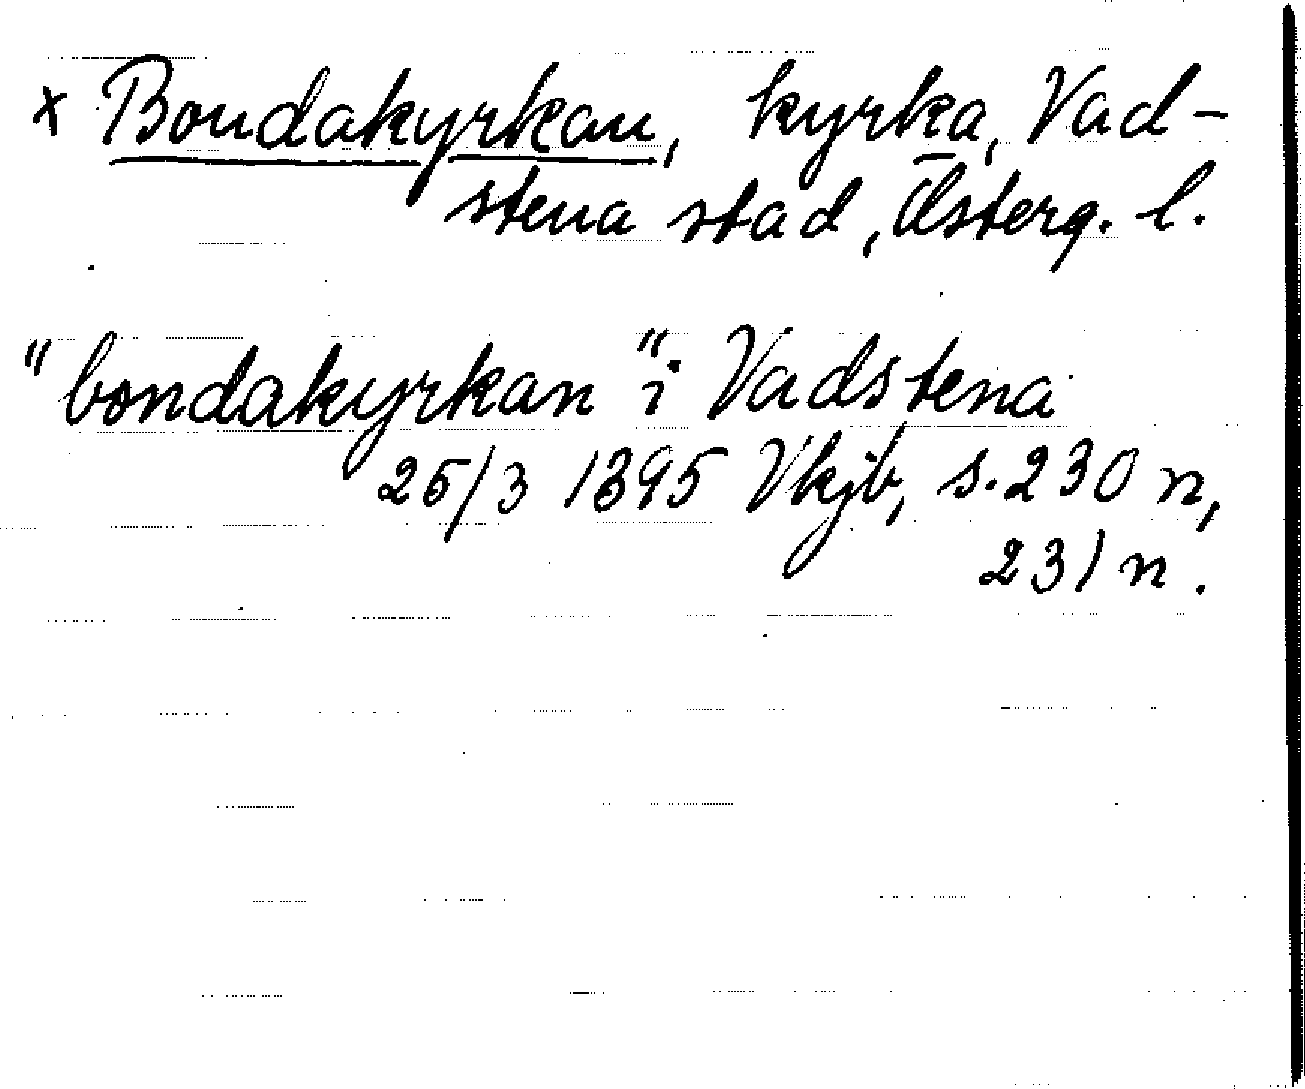 x Bondakyrkan, kyrka, Vad-
stena stad, Österg. l.
"bondakyrkan" i Vadstena
25/3 1395 Vkjb, s. 230 n,
231 n.